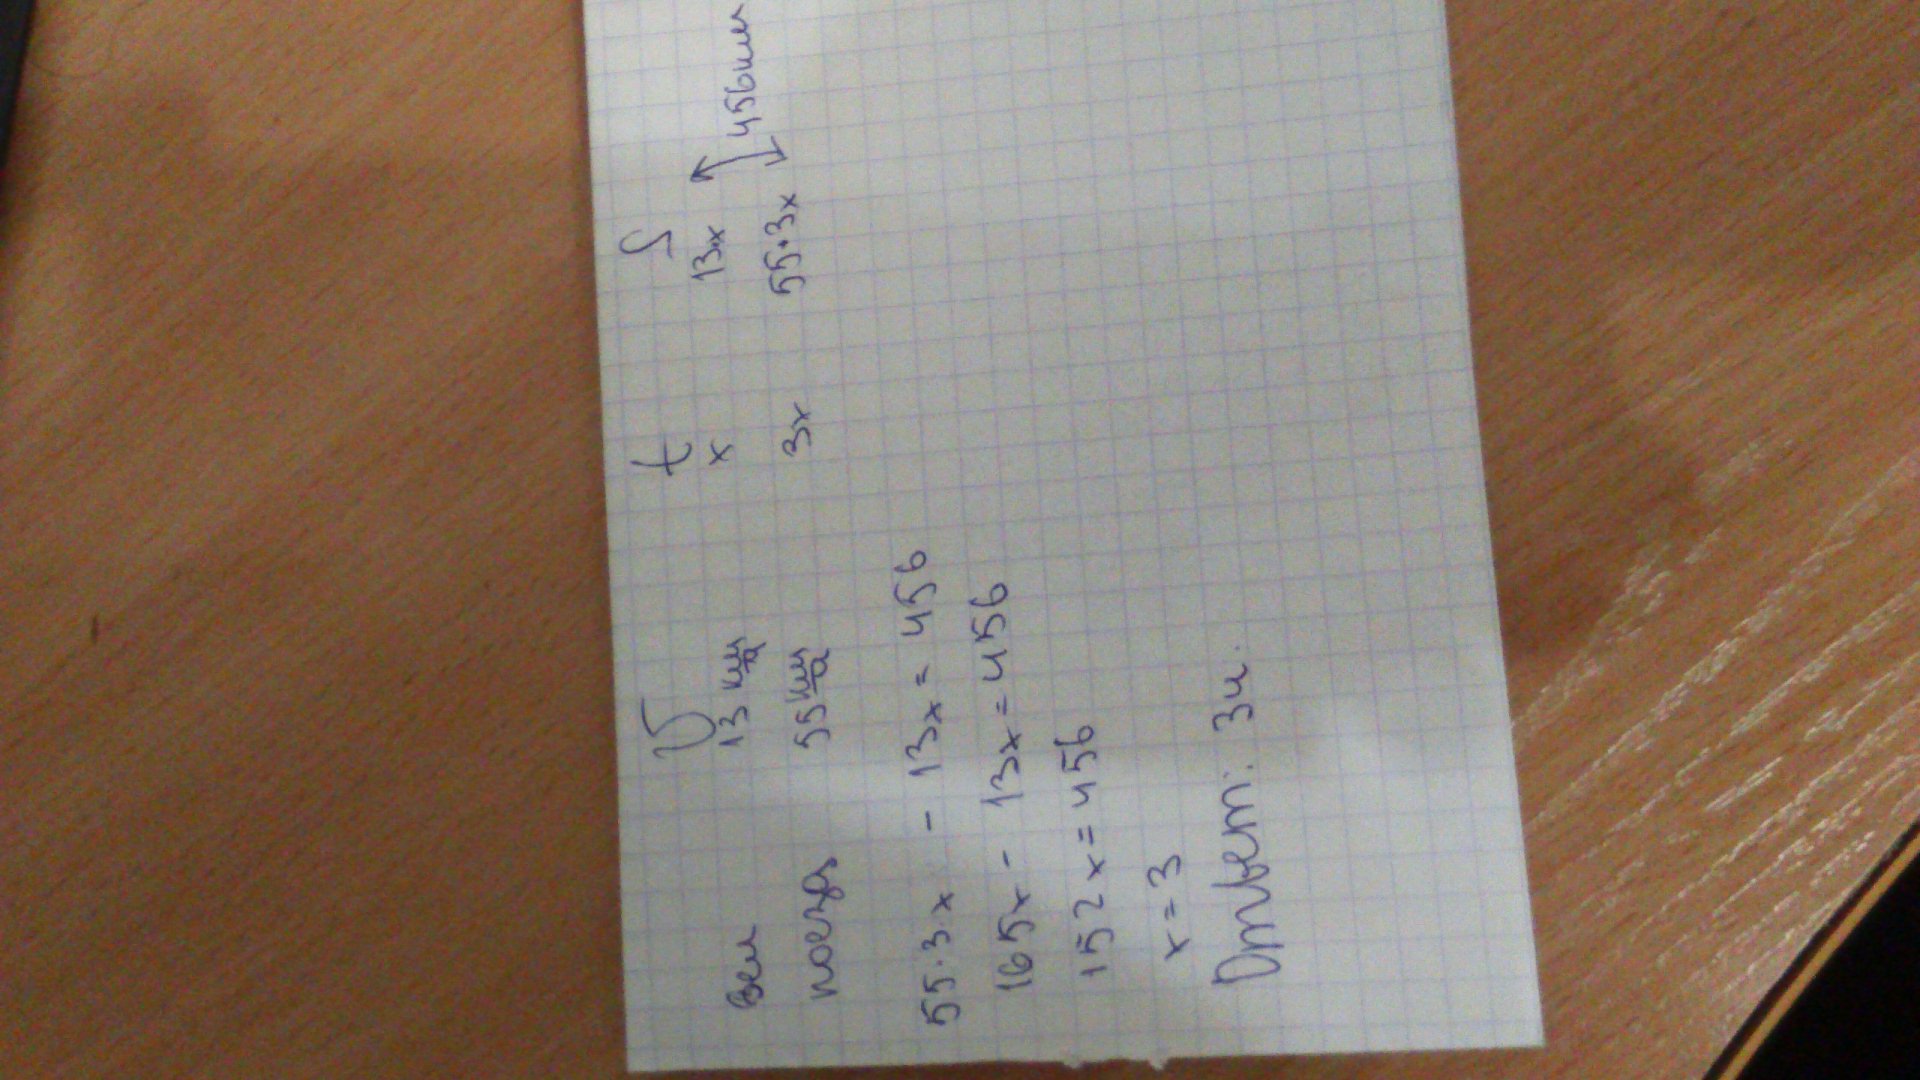 υ t S
вел 13 км/ч x 13x
поезд 55 км/ч 3x 55·3x 456км
55·3x - 13x = 456
165x - 13x = 456
152x = 456
x = 3
Ответ: 3ч.